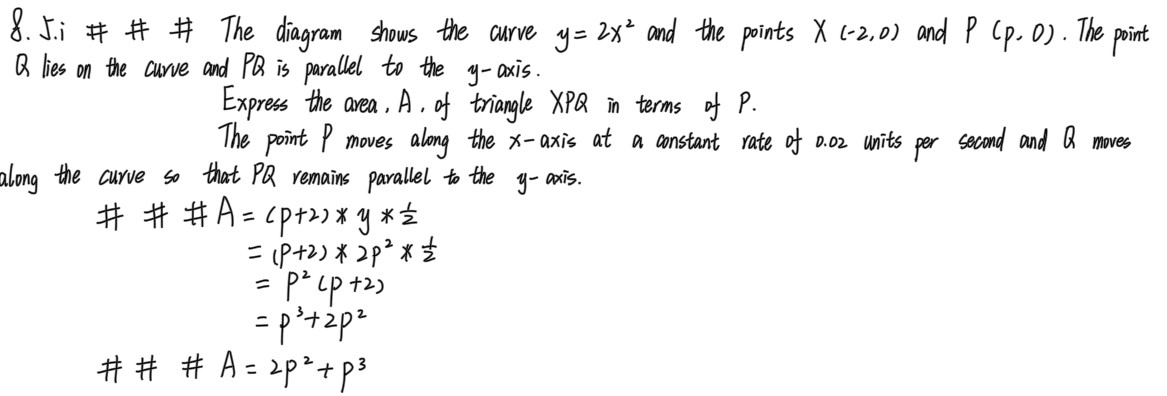 8. 5.i # # # The diagram shows the curve y = 2x² and the points X (-2,0) and P (p, 0). The point
Q lies on the curve and PQ is parallel to the y-axis.
Express the area, A, of triangle XPQ in terms of P.
The point P moves along the x-axis at a constant rate of 0.02 units per second and Q moves
along the curve so that PQ remains parallel to the y-axis.
# # # A = (p+2) * y * ½
= (p+2) * 2p² * ½
= p² (p+2)
= p³ + 2p²
# # # A = 2p² + p³